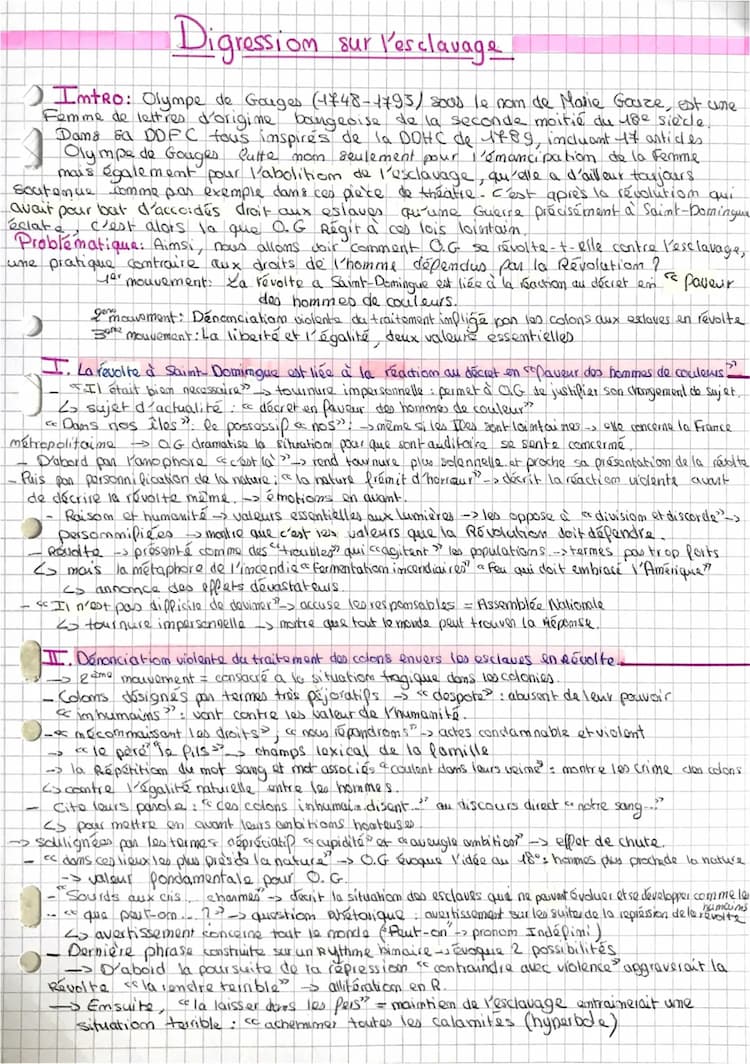 Digression sur l'esclavage
Intro: Olympe de Gouges (1748-1793) sous le nom de Marie Gouze, est une
Femme de lettres d'origine bourgeoise de la seconde moitié du 18e siècle.
Dans sa DDFC tous inspirés de la DDHC de 1789, incluant 17 articles
Olympe de Gouges lutte non seulement pour l'émancipation de la Femme
mais également pour l'abolition de l'esclavage, qu'elle a d'ailleur toujours
soutenue comme par exemple dans ces pièce de théâtre. C'est après la révolution qui
avait pour but d'accoidés droit aux eslaves qu'une Guerre précisément à Saint-Domingue
éclate, c'est alors la que O.G Régit à ces lois lointain.
Problématique: Ainsi, nous allons voir comment O.G se révolte-t-elle contre l'esclavage,
une pratique contraire aux droits de l'homme dépendus par la Révolution ?
1er mouvement: La révolte a Saint-Domingue est liée à la réaction au décret en « faveur
des hommes de couleurs.
2ème mouvement: Dénonciation violente du traitement impligé par les colons aux esclaves en révolte
3ème mouvement: La liberté et l'égalité, deux valeurs essentielles
I. La révolte à Saint-Domingue est liée à la réaction au décret en « faveur des hommes de couleurs »
- « Il était bien necessaire » → tournure impersonnelle : permet à O.G de justifier son changement de sujet.
↳ sujet d'actualité : « décret en faveur des hommes de couleur »
« Dans nos îles » : le possessif « nos » : → même si les Iles sont lointaines → elle concerne la France
métropolitaine → O.G dramatise la situation pour que sont auditoire se sente concerné.
- D'abord par l'anaphore « c'est là » → rend tournure plus solennelle et proche sa présentation de la révolte
- Puis par personnification de la nature : « la nature frémit d'horreur » → décrit la réaction violente avant
de décrire la révolte même. → émotions en avant.
- Raison et humanité → valeurs essentielles aux lumières → les oppose à « division et discorde » →
personnifiées → montre que c'est les valeurs que la Révolution doit défendre.
- Révolte → présenté comme des « troubles » qui « agitent » les populations → termes pas trop forts
↳ mais la métaphore de l'incendie « fermentation incendiaires » « Feu qui doit embrasé l'Amérique »
↳ annonce des effets dévastateurs.
- « Il n'est pas difficile de deviner » → accuse les responsables = Assemblée Nationale
↳ tournure impersonnelle → montre que tout le monde peut trouver la Réponse.
II. Dénonciation violente du traitement des colons envers les esclaves en Révolte.
→ 2ème mouvement = consacré à la situation tragique dans les colonies.
- Colons désignés par termes très péjoratifs → « despote » : abusent de leur pouvoir
« inhumains » : vont contre les valeur de l'humanité.
- « méconnaissant les droits », « nous répandrons » → actes condamnable et violent
→ « le père » « le fils » → champs lexical de la famille
→ la Répétition du mot sang et mot associés « coulent dans leurs veine » : montre les crime des colons
↳ contre l'égalité naturelle entre les hommes.
- Cite leurs parole : « ces colons inhumain disent... » au discours direct « notre sang... »
↳ pour mettre en avant leurs ambitions honteuses.
→ soulignées par les termes dépréciatif « cupidité » et « aveugle ambition » → effet de chute.
- « dans ces lieux les plus près de la nature » → O.G évoque l'idée au 18e : hommes plus proche de la nature
→ valeur fondamentale pour O.G.
- « Sourds aux cris... charmes » → décrit la situation des esclaves qui ne peuvent évoluer et se développer comme les humains
- « que peut-on ... ? » → question rhétorique : avertissement sur les suites de la représsion de la révolte
↳ avertissement concerne tout le monde (« Peut-on » → pronom Indéfini)
- Dernière phrase construite sur un Rythme binaire → évoque 2 possibilités
→ D'abord la poursuite de la répression « contraindre avec violence » aggraverait la
Révolte « la rendre terrible » → allitération en R.
→ Ensuite, « la laisser dans les fers » = maintien de l'esclavage entrainerait une
situation terrible : « acheminer toutes les calamités (hyperbole)